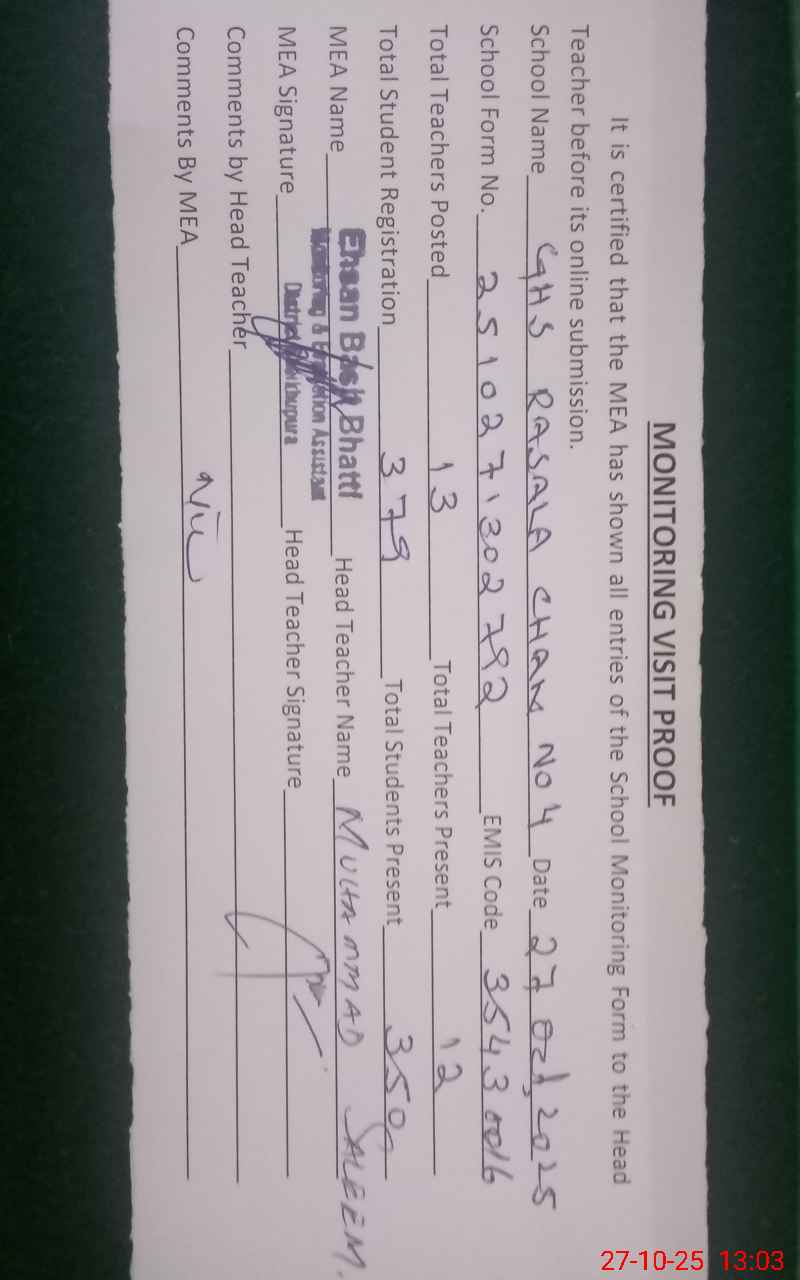 MONITORING VISIT PROOF
It is certified that the MEA has shown all entries of the School Monitoring Form to the Head
Teacher before its online submission.
School Name GHS RASALA CHAK NO 4 Date 27 Oct, 2025
School Form No. 2510271302792 EMIS Code 35430016
Total Teachers Posted 13 Total Teachers Present 12
Total Student Registration 379 Total Students Present 350
MEA Name Ehsan Bhatti Head Teacher Name MUHAMMAD SALEEM.
Monitoring & Assistant
District
MEA Signature Head Teacher Signature
Comments by Head Teacher
Comments By MEA Nil
27-10-25 13:03